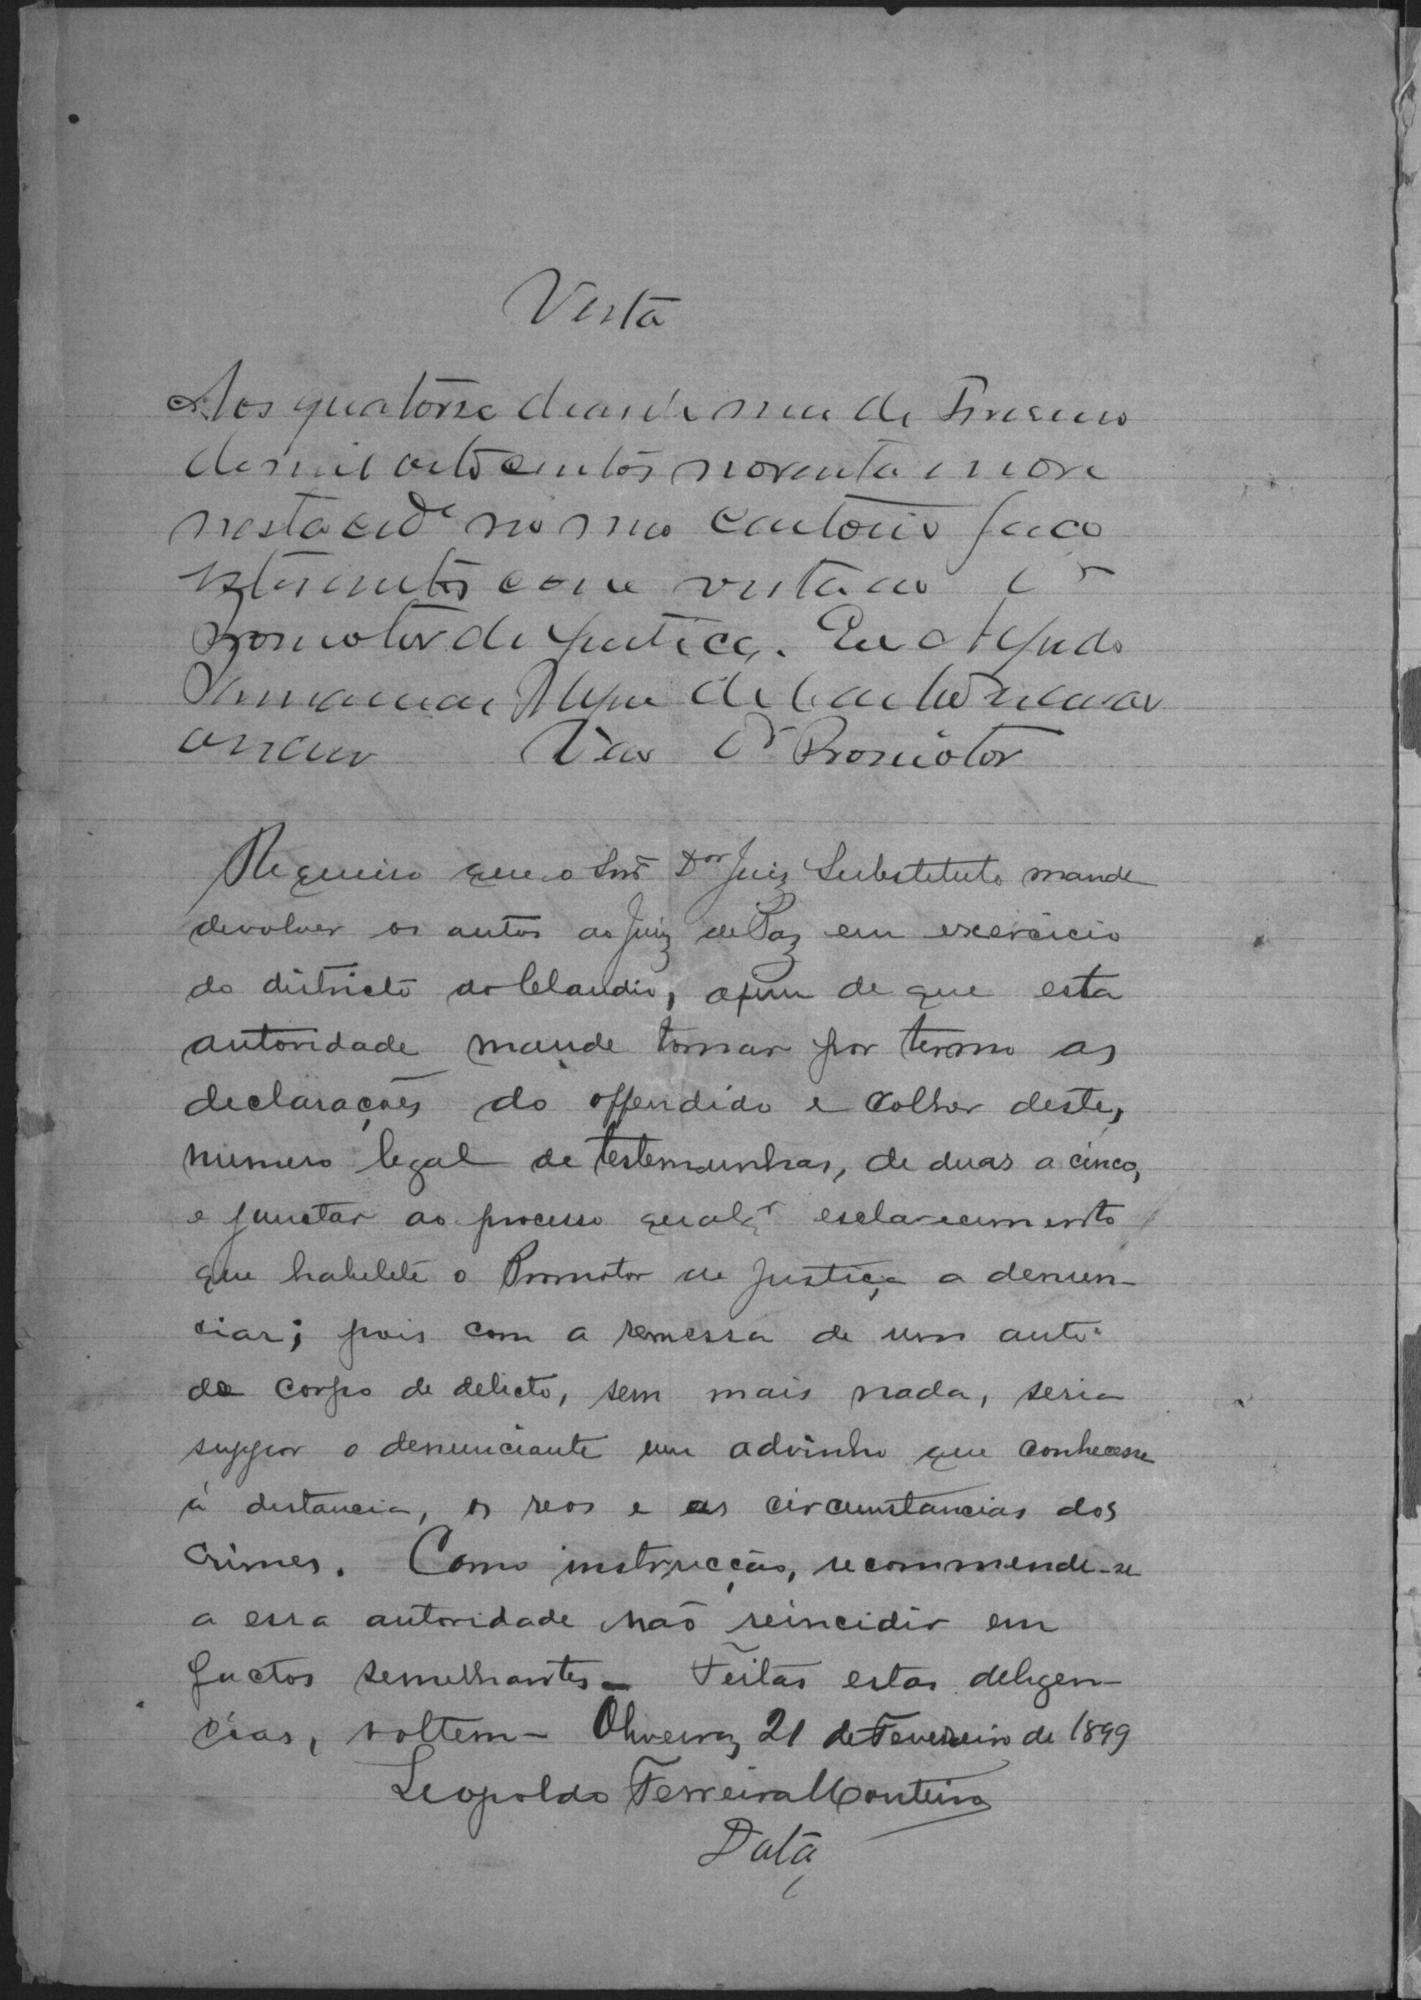 Vista
Aos quatorze dias do mez de Fevereiro
de mil oitocentos noventa e nove
nesta cid.e no meu cartorio faço
estes autos com vista ao Dr
Promotor de Justiça. Eu
de Carvalho escrivão
Dr Promotor
Requeiro que o Snr Dor Juiz Substituto mande
devolver os autos ao Juiz de Paz em exercicio
do districto do Claudio, afim de que esta
autoridade mande tomar por termo as
declarações do offendido e colher deste,
numero legal de testemunhas, de duas a cinco,
e junctar ao processo qualqr esclarecimento
que habilite o Promotor de Justiça a denun-
ciar; pois com a remessa de um auto
de corpo de delicto, sem mais nada, seria
suppor o denunciante um advinho que conhecesse
á distancia, os reos e as circumstancias dos
crimes. Como instrucção, recommende-se
a essa autoridade não reincidir em
factos semelhantes - Feitas estas deligen-
cias, voltem - Oliveira, 21 de Fevereiro de 1899
Leopoldo Ferreira Monteiro
Data